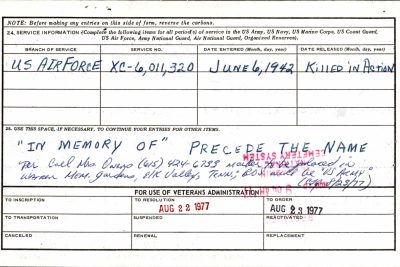 NOTE: Before making any entries on this side of form, reverse the carbons.
24. SERVICE INFORMATION (Complete the following items for all period(s) of service in the US Army, US Navy, US Marine Corps, US Coast Guard,
US Air Force, Army National Guard, Air National Guard, Organized Reserves).
BRANCH OF SERVICE SERVICE NO. DATE ENTERED (Month, day, year) DATE RELEASED (Month, day, year)
US AIR FORCE XC-6,011,320 JUNE 6, 1942 KILLED IN ACTION
USE THIS SPACE, IF NECESSARY, TO CONTINUE YOUR ENTRIES FOR OTHER ITEMS.
"IN MEMORY OF" PRECEDE THE NAME
Per Call Mrs Owens (615) 424-6733 marker to be placed in
CEMETERY SYSTEM
Mem. Gardens, Valley, Tenn; will be "US Army"
8/23/77)
FOR USE OF VETERANS ADMINISTRATION
TO INSCRIPTION TO RESOLUTION TO ORDER
AUG 22 1977 AUG 23 1977
TO TRANSPORTATION SUSPENDED REACTIVATED
CANCELED RENEWAL REPLACEMENT